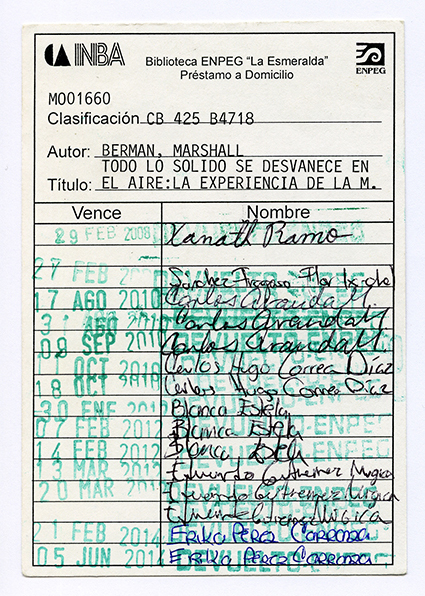 INBA
Biblioteca ENPEG "La Esmeralda"
Préstamo a Domicilio
ENPEG
M001660
Clasificación CB 425 B4718
Autor: BERMAN, MARSHALL
TODO LO SOLIDO SE DESVANECE EN
Título: EL AIRE:LA EXPERIENCIA DE LA M.
Vence Nombre
29 FEB 2008 Xanath Ramo
27 FEB Sánchez Fragoso Flor
17 AGO 2010 Carlos Aranda M.
31 AGO 2010 Carlos Aranda M.
08 SEP 2010 Carlos Aranda M.
OCT 2010 Carlos Hugo Correa Díaz
18 OCT Carlos Hugo Correa Díaz
30 ENE 2012 Blanca Estela
07 FEB 2012 Blanca Estela
14 FEB 2012 Blanca Estela
13 MAR 2012 Eduardo Gutierrez Mugica
20 MAR 2012 Eduardo Gutierrez Mugica
Mugica
21 FEB 2014 Erika Perez Carranza
05 JUN 2014 Erika Perez Carranza
DEVUELTO-ENPEG